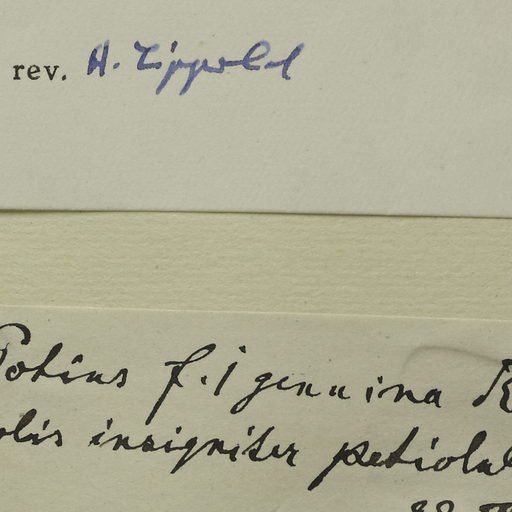 rev. H. Lippold
Potius f. genuina
olis insigniter petiolat